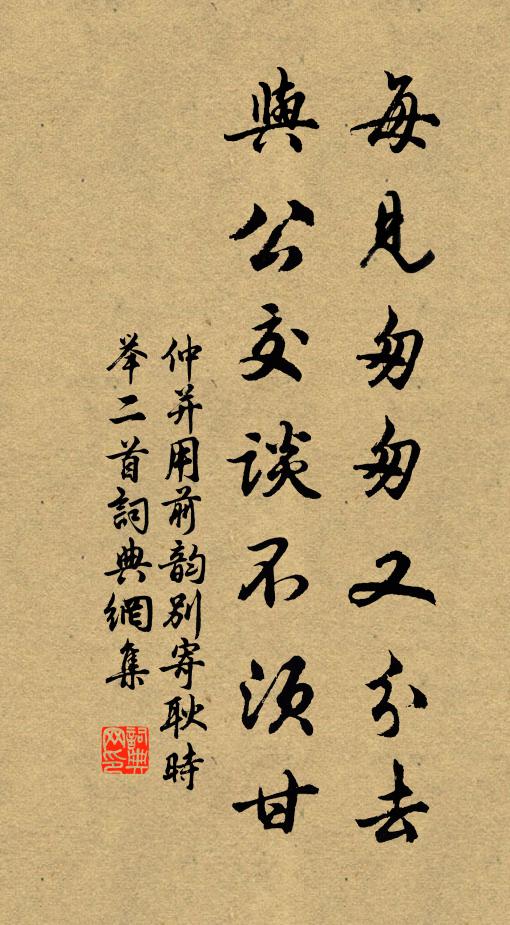 每見匆匆又分去
與公交談不須甘
仲并用前韵別寄耿時
举二首詞典網集
詞典网印